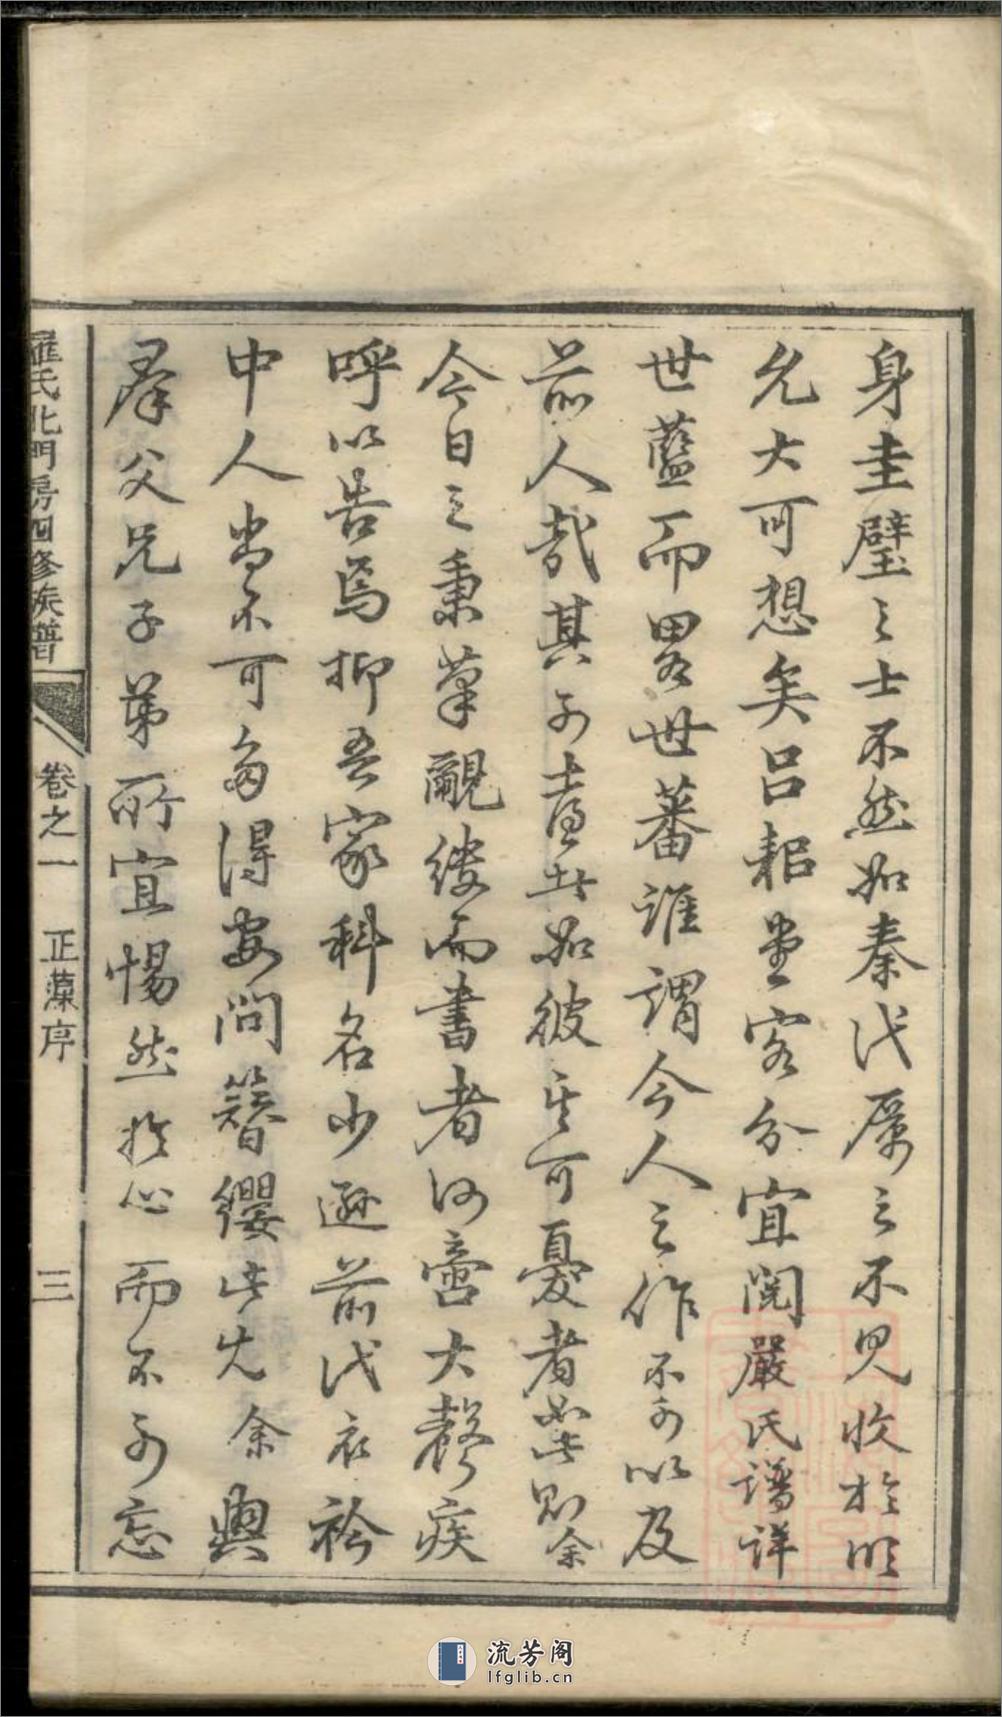 身圭璧之士不然如秦代厲之不見收於明
允大可想矣呂耜堂客分宜閱嚴氏譜詳
世藍而畧世蕃誰謂今人之作不可以及
前人哉其可嘉也如彼其可憂者如此則余
今日之秉筆覼縷而書者何啻大聲疾
呼以告焉抑吾家科名少遜前代衣衿
中人尚不可多得安問簪纓此尤余與
羣父兄子弟所宜惕然於心而不可忘
羅氏北門房四修族譜
卷之一 正藻序
三
流芳阁
lfglib.cn